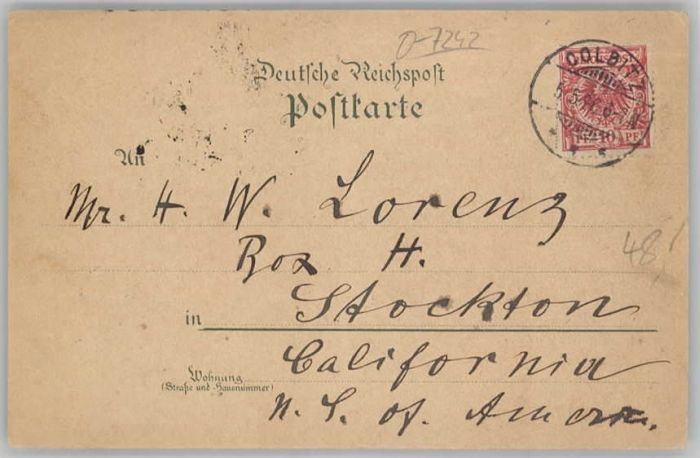 O-7242
Deutsche Reichspost
Postkarte
COLBITZ
10 PF
An
Mr. H. W. Lorenz
Box H.
48
in Stockton
California
Wohnung
(Straße und Hausnummer)
N. S. of Amer